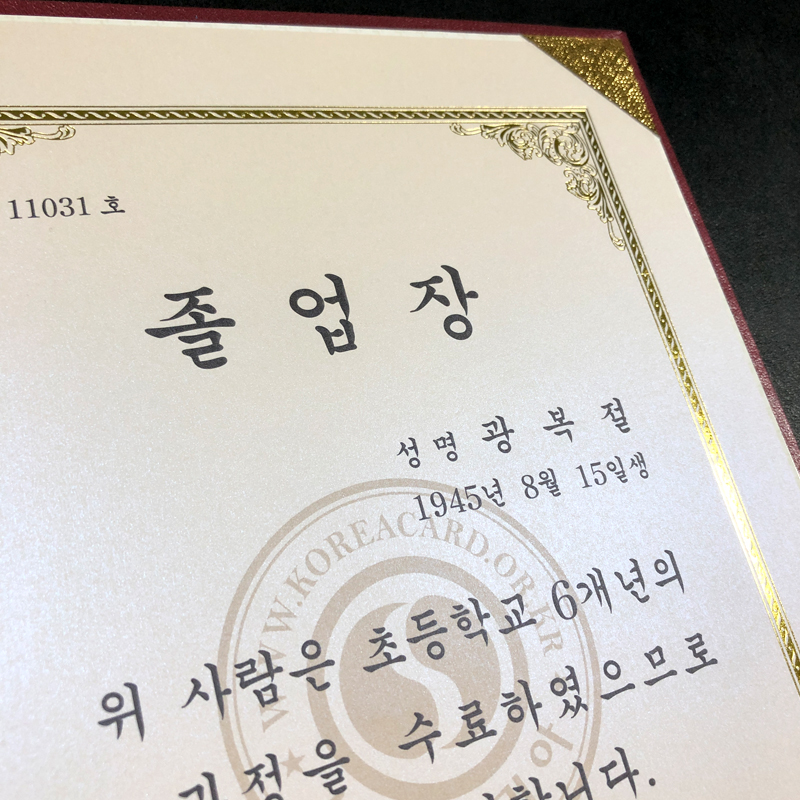 11031 호
졸업장
성명 광복절
1945년 8월 15일생
WWW.KOREACARD.OR.KR
위 사람은 초등학교 6개년의
과정을 수료하였으므로
합니다.